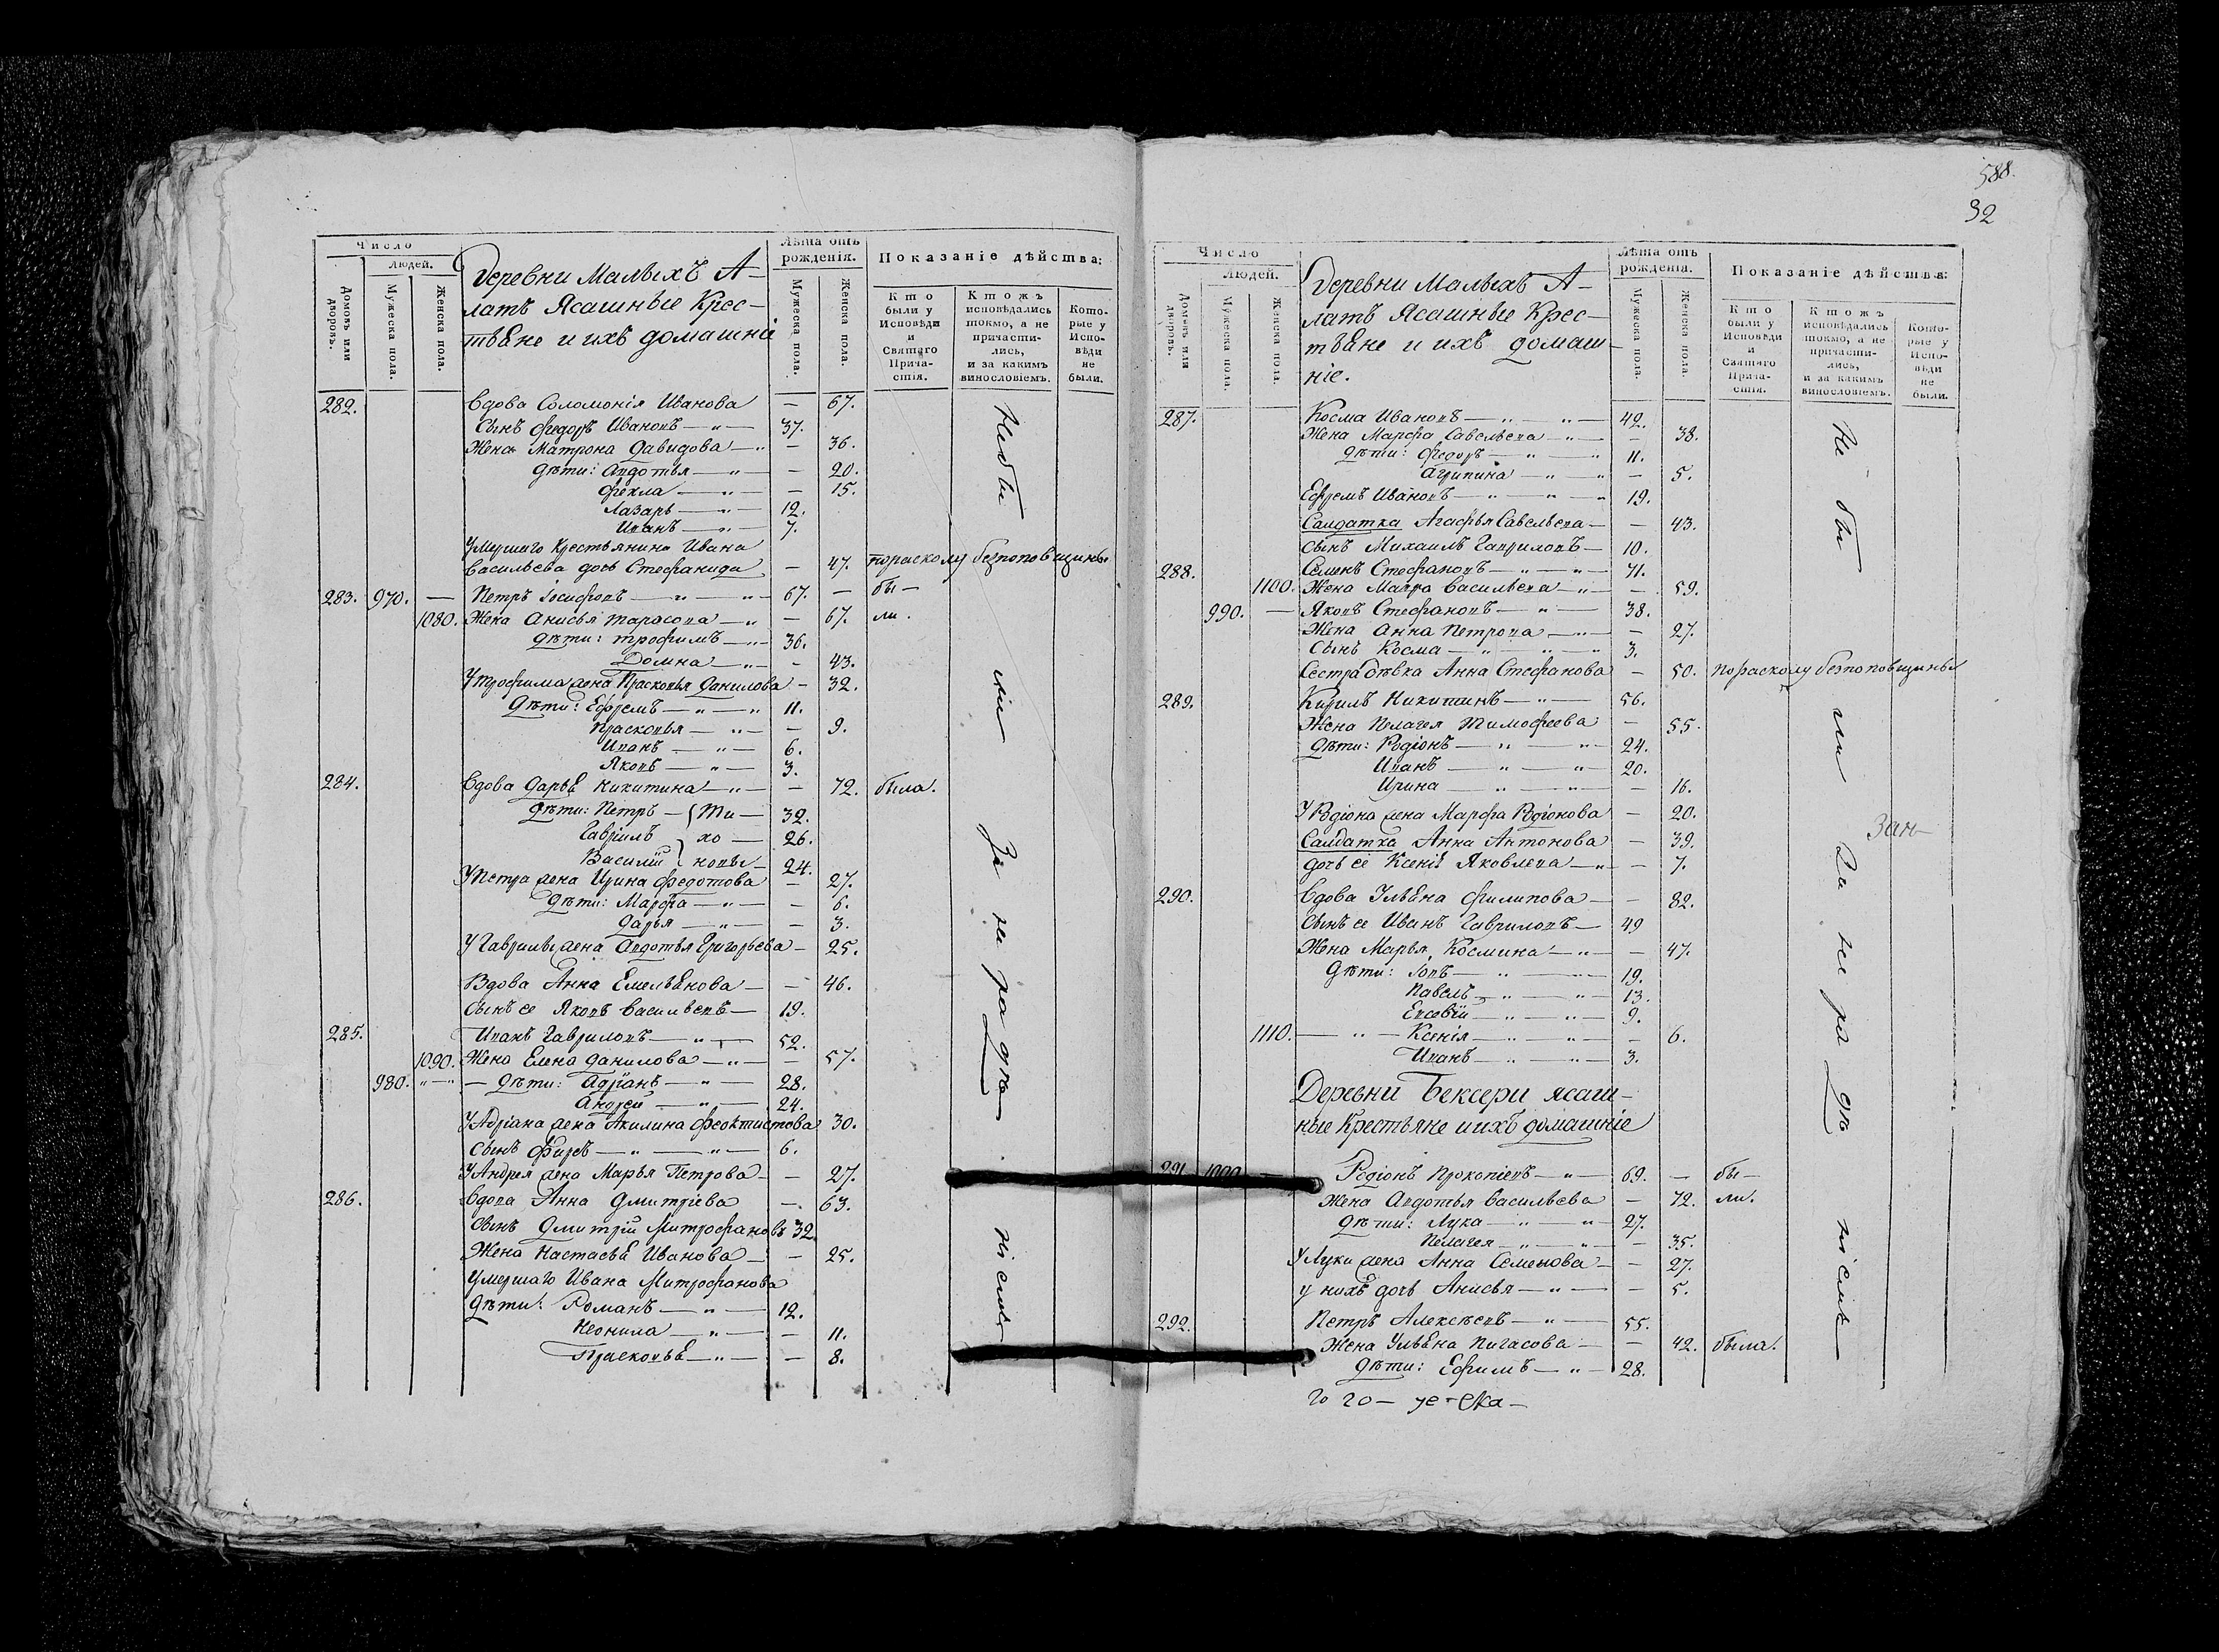 Число
Людей.
Домовъ или дворовъ.
Мужеска пола.
Женска пола.
Деревни Малыхъ А-
латъ Ясашные Крес-
тьяне и ихъ домашніе
Лѣта отъ рожденія.
Мужеска пола.
Женска пола.
Показаніе дѣйства:
Кто были у Исповѣди и Святаго Причастія.
Ктожъ исповѣдались токмо, а не причастились, и за какимъ винословіемъ.
Которые у Исповѣди не были.
282. Вдова Соломонія Иванова — 67.
Сынъ Федоръ Ивановъ — 37.
Жена Матрона Давидова — 36.
дѣти: Авдотья — 20.
Фекла — 15.
Лазарь — 12.
Иванъ — 7.
Умершаго Крестьянина Ивана
Васильева дочь Стефанида — 47. порасколу безпоповщины
283. 970. — Петръ Іосифовъ — 67. — бы-
1080. Жена Анисья Тарасова — 67. ли.
дѣти: Трофимъ — 36.
Домна — 43.
У Трофима жена Прасковья Данилова — 32.
Дѣти: Ефремъ — 11.
Прасковья — 9.
Иванъ — 6.
Яковъ — 3.
284. Вдова Дарья Никитина — 72. была.
Дѣти: Петръ — Ти- 32.
Гаврилъ хо- 26.
Василій новы — 24.
У Петра жена Ирина Федотова — 27.
Дѣти: Марфа — 6.
Дарья — 3.
У Гаврилы жена Авдотья Григорьева — 25.
Вдова Анна Емельянова — 46.
Сынъ ее Яковъ Васильевъ — 19.
285. Иванъ Гавриловъ — 52.
1090. Жена Елена Данилова — 57.
980. — дѣти: Адріанъ — 28.
Андрей — 24.
У Адріана жена Акилина Феоктистова 30.
Сынъ Фирсъ — 6.
У Андрея жена Марья Петрова — 27.
286. Вдова Анна Дмитріева — 63.
Сынъ Дмитрій Митрофановъ 32.
Жена Настасья Иванова — 25.
Умершаго Ивана Митрофанова
Дѣти: Романъ — 12.
Неонила — 11.
Прасковья — 8.
Небы ли За не ра дѣ ніемъ
588.
32
Число
Людей.
Домовъ или дворовъ.
Мужеска пола.
Женска пола.
Деревни Малыхъ А-
латъ Ясашные Крес-
тьяне и ихъ домаш-
ніе.
Лѣта отъ рожденія.
Мужеска пола.
Женска пола.
Показаніе дѣйства:
Кто были у Исповѣди и Святаго Причастія.
Ктожъ исповѣдались токмо, а не причастились, и за какимъ винословіемъ.
Которые у Исповѣди не были.
287. Косма Ивановъ — 42.
Жена Марфа Савельева — 38.
дѣти: Федоръ — 11.
Агрипина — 5.
Ефремъ Ивановъ — 19.
Салдатка Агафья Савельева — 43.
Сынъ Михаилъ Гавриловъ — 10.
288. Семенъ Стефановъ — 71.
1100. Жена Мавра Васильева — 59.
990. — Яковъ Стефановъ — 38.
Жена Анна Петрова — 27.
Сынъ Косма — 3.
Сестра дѣвка Анна Стефанова — 50. порасколу безпоповщины
289. Кирилъ Никитинъ — 56.
Жена Пелагея Тимофеева — 55.
Дѣти: Родіонъ — 24.
Иванъ — 20.
Ирина — 16.
У Родіона жена Марфа Родіонова — 20.
Салдатка Анна Антонова — 39.
дочь ее Ксенія Яковлева — 7.
290. Вдова Ульяна Филипова — 82.
Сынъ ее Иванъ Гавриловъ — 49
Жена Марья Космина — 47.
Дѣти: Іовъ — 19.
Павелъ — 13.
Евсевій — 9.
1110. — Ксенія — 6.
Иванъ — 3.
Деревни Бексери ясаш-
ные Крестьяне и ихъ домашніе
291. 1000. — Родіонъ Прокопіевъ — 69. — бы-
Жена Авдотья Васильева — 72. ли.
Дѣти: Лука — 27.
Пелагея — 35.
У Луки жена Анна Семенова — 27.
у нихъ дочь Анисья — 5.
292. Петръ Алексѣевъ — 55.
Жена Ульяна Пигасова — 42. была.
Дѣти: Ефимъ — 28.
Не бы ли За не ра дѣ ніемъ
Зан-